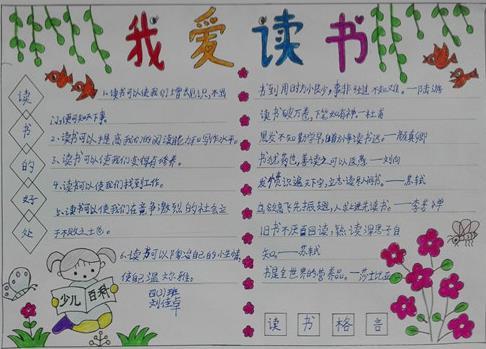 我爱读书
读书的好处
1.读书可以使我们增长见识,不出
门便可知天下事。
2.读书可以提高我们的阅读能力和写作水平。
3.读书可以使我们变得有修养。
4.读书可以使我们找到工作。
5.读书可以使我们在竞争激烈的社会立
于不败之土也。
6.读书可以陶冶自己的小生情,
使自己温文尔雅。
四(3)班
少儿百科
书到用时方小恨少,事非经过不知难。——陆游
读书破万卷,下笔如有神。——杜甫
黑发不知勤学早,白首方悔读书迟。——颜真卿
书犹药也,善读之可以医愚。——刘向
发愤识遍天下字,立志读尽人间书。——苏轼
鸟欲高飞先振翅,人求上进先读书。——李苦禅
旧书不厌百回读,熟读深思子自
知。——苏轼
书是全世界的营养品。——莎士比亚
读书格言